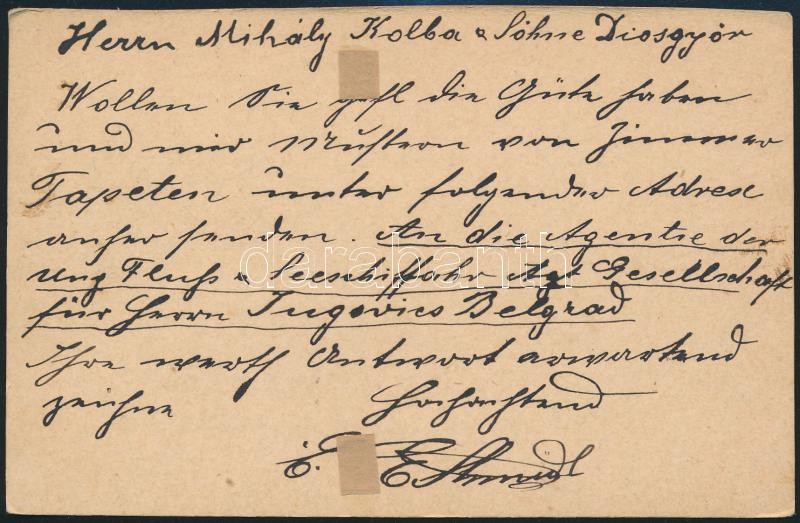 Herrn Mihály Kolba & Söhne Diosgyör
Wollen Sie gefl die Güte haben
und mir Mustern von Zimmer
Tapeten unter folgender Adress
anher senden. An die Agentie der
Ung Fluß & Seeschiffahr Act Gesellschaft
für Herrn Jugovics Belgrad
Ihre werth Antwort erwartend
zeichne Hochachtend
E.
darabanth